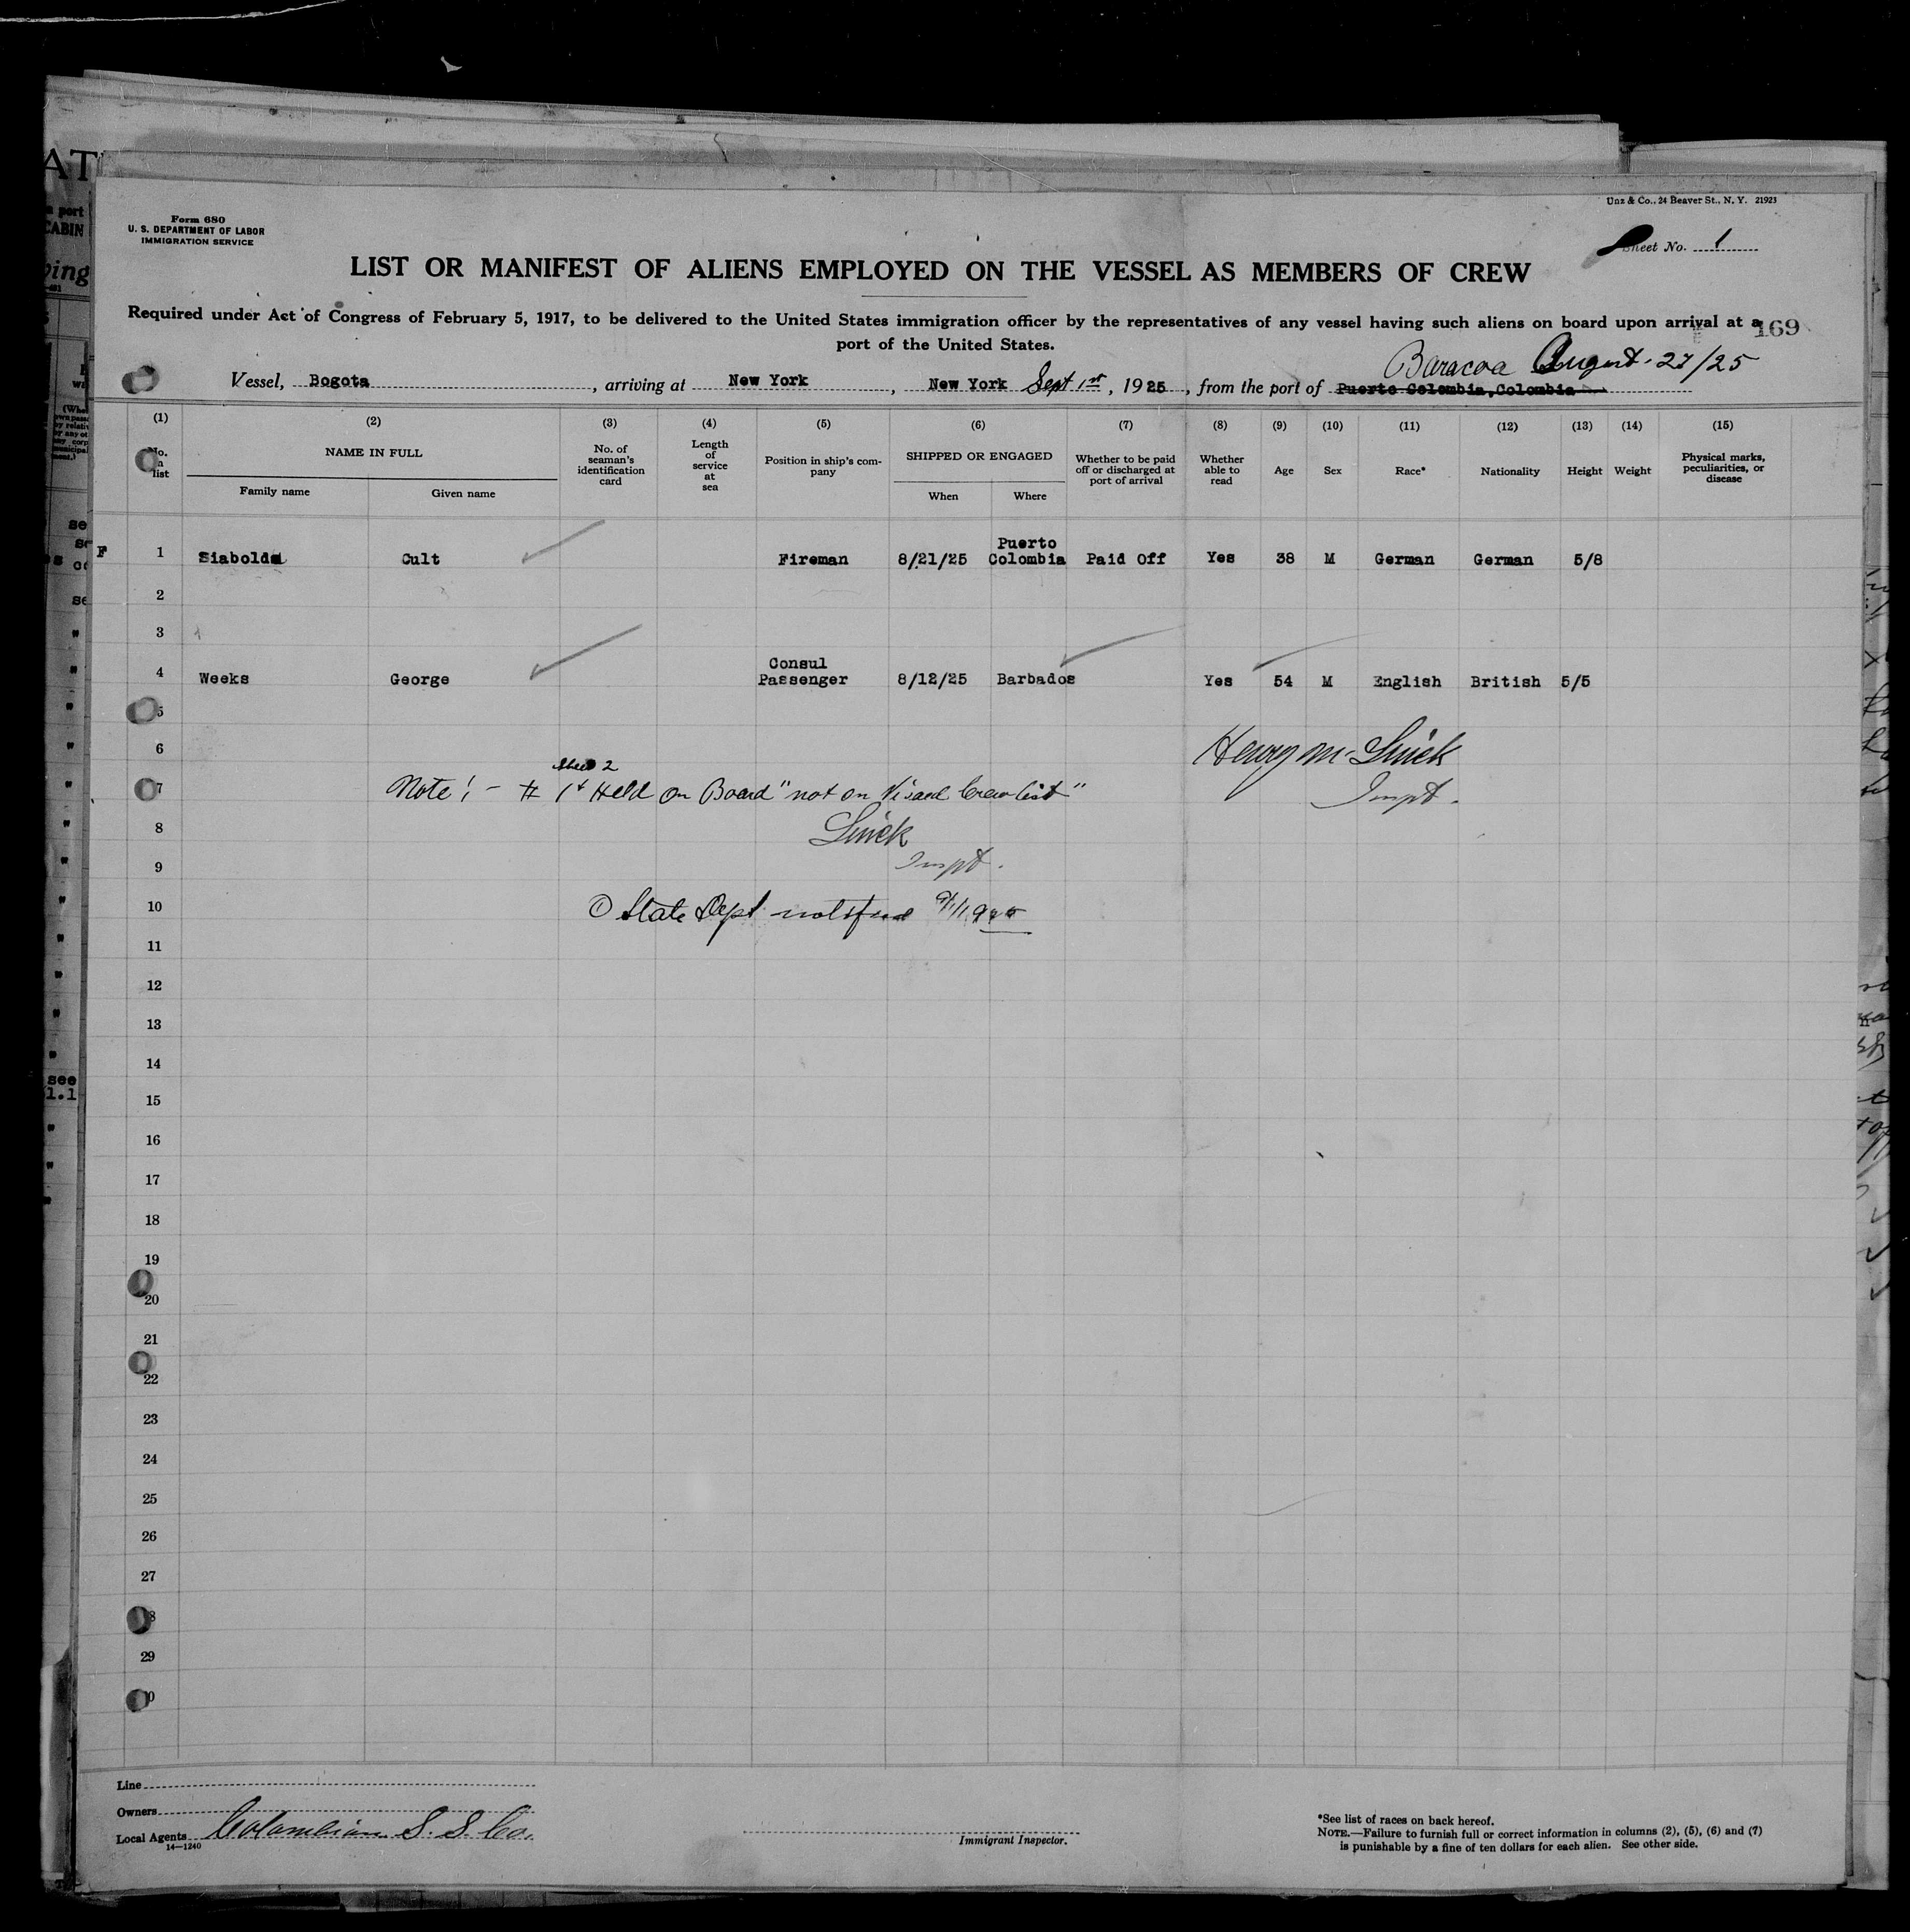 Unz & Co., 24 Beaver St., N. Y. 21923
Form 680
U. S. DEPARTMENT OF LABOR
IMMIGRATION SERVICE
Sheet No. 1
LIST OR MANIFEST OF ALIENS EMPLOYED ON THE VESSEL AS MEMBERS OF CREW
Required under Act of Congress of February 5, 1917, to be delivered to the United States immigration officer by the representatives of any vessel having such aliens on board upon arrival at a
port of the United States.
169
Baracoa August 27/25
Vessel, Bogota, arriving at New York, New York Sept 1st, 1925, from the port of Puerto Colombia, Colombia
(1) (2) (3) (4) (5) (6) (7) (8) (9) (10) (11) (12) (13) (14) (15)
No. list
NAME IN FULL
Family name Given name
No. of seaman's identification card
Length of service at sea
Position in ship's company
SHIPPED OR ENGAGED
When Where
Whether to be paid off or discharged at port of arrival
Whether able to read
Age
Sex
Race*
Nationality
Height
Weight
Physical marks, peculiarities, or disease
F 1 Siabold Cult Fireman 8/21/25 Puerto Colombia Paid Off Yes 38 M German German 5/8
2
3
4 Weeks George Consul Passenger 8/12/25 Barbados Yes 54 M English British 5/5
5
6 Henry M. Swick
Sheet 2
7 Note! - # 1+ Held on Board "not on Visaed Crew list" Inspt.
8 Swick
9 Inspt.
10 ① State Dept notified
11
12
13
14
15
16
17
18
19
20
21
22
23
24
25
26
27
28
29
30
Line
Owners
Local Agents Colombian S. S. Co.
14—1240
Immigrant Inspector.
*See list of races on back hereof.
NOTE.—Failure to furnish full or correct information in columns (2), (5), (6) and (7)
is punishable by a fine of ten dollars for each alien. See other side.